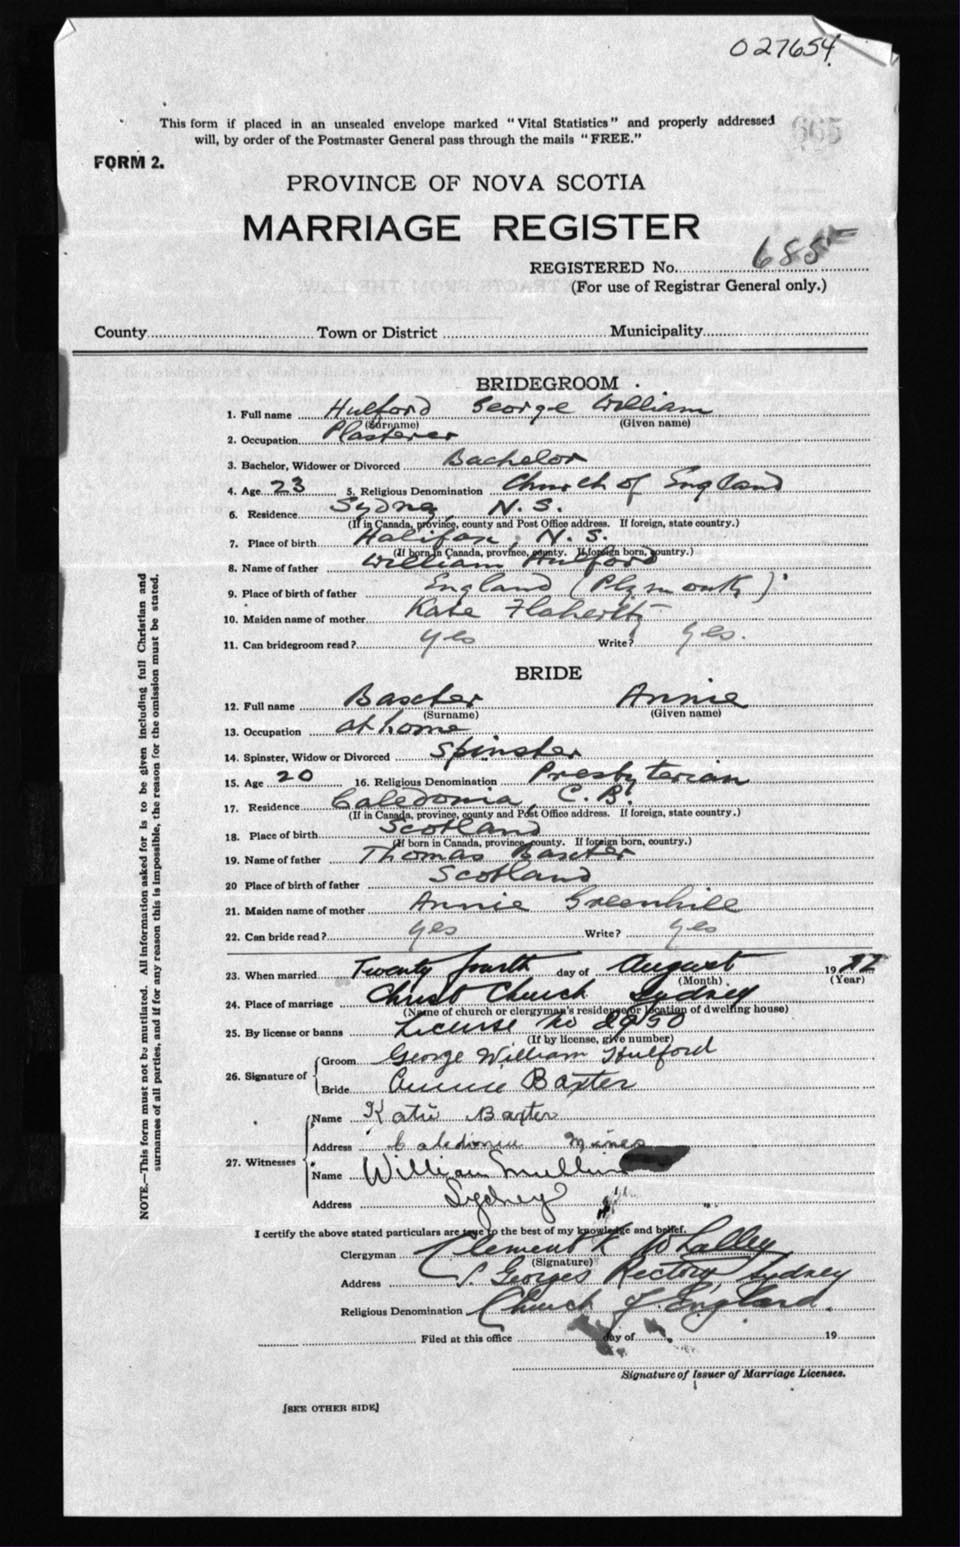 027654
This form if placed in an unsealed envelope marked "Vital Statistics" and properly addressed
will, by order of the Postmaster General pass through the mails "FREE."
665
FORM 2.
PROVINCE OF NOVA SCOTIA
MARRIAGE REGISTER
REGISTERED No. 685
(For use of Registrar General only.)
County Town or District Municipality
BRIDEGROOM
1. Full name Hulford George William
(Surname) (Given name)
2. Occupation Plasterer
3. Bachelor, Widower or Divorced Bachelor
4. Age 23 5. Religious Denomination Church of England
6. Residence Sydney N.S.
(If in Canada, province, county and Post Office address. If foreign, state country.)
7. Place of birth Halifax, N.S.
(If born in Canada, province, county. If foreign born, country.)
8. Name of father William Hulford
9. Place of birth of father England (Plymouth)
10. Maiden name of mother Kate Flaherty
11. Can bridegroom read? yes Write? yes.
BRIDE
12. Full name Baxter Annie
(Surname) (Given name)
13. Occupation at home
14. Spinster, Widow or Divorced Spinster
15. Age 20 16. Religious Denomination Presbyterian
17. Residence Caledonia, C.B.
(If in Canada, province, county and Post Office address. If foreign, state country.)
18. Place of birth Scotland
(If born in Canada, province, county. If foreign born, country.)
19. Name of father Thomas Baxter
20 Place of birth of father Scotland
21. Maiden name of mother Annie Greenhill
22. Can bride read? yes Write? yes
23. When married Twenty fourth day of August 19
(Month) (Year)
24. Place of marriage Christ Church Sydney
(Name of church or clergyman's residence or location of dwelling house)
25. By license or banns License No
(If by license, give number)
26. Signature of Groom George William Hulford
Bride Annie Baxter
27. Witnesses Name Katie Baxter
Address Caledonia Mines
Name William
Address Sydney
I certify the above stated particulars are true to the best of my knowledge and belief.
Clergyman Clement K Whalley
(Signature)
Address St Georges Rectory Sydney
Religious Denomination Church of England.
Filed at this office day of 19
Signature of Issuer of Marriage Licenses.
[SEE OTHER SIDE]
NOTE.—This form must not be mutilated. All information asked for is to be given including full Christian and
surnames of all parties, and if for any reason this is impossible, the reason for the omission must be stated.